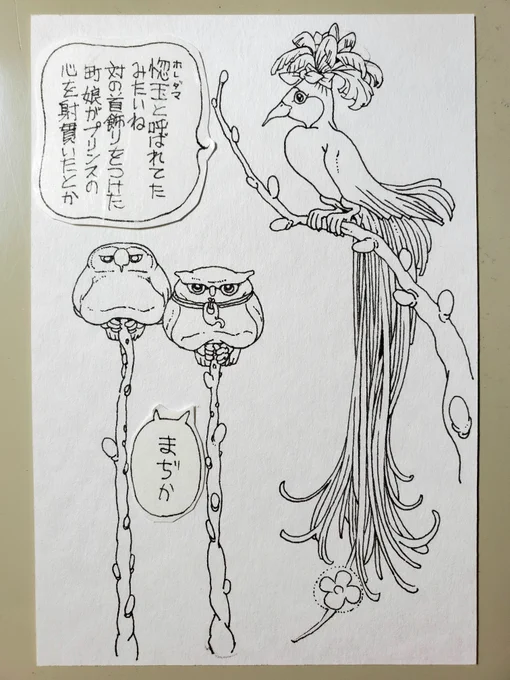 惚玉と呼ばれてた
ホレダマ
みたいね
対の首飾りをつけた
町娘がプリンスの
心を射貫いたとか
まぢか